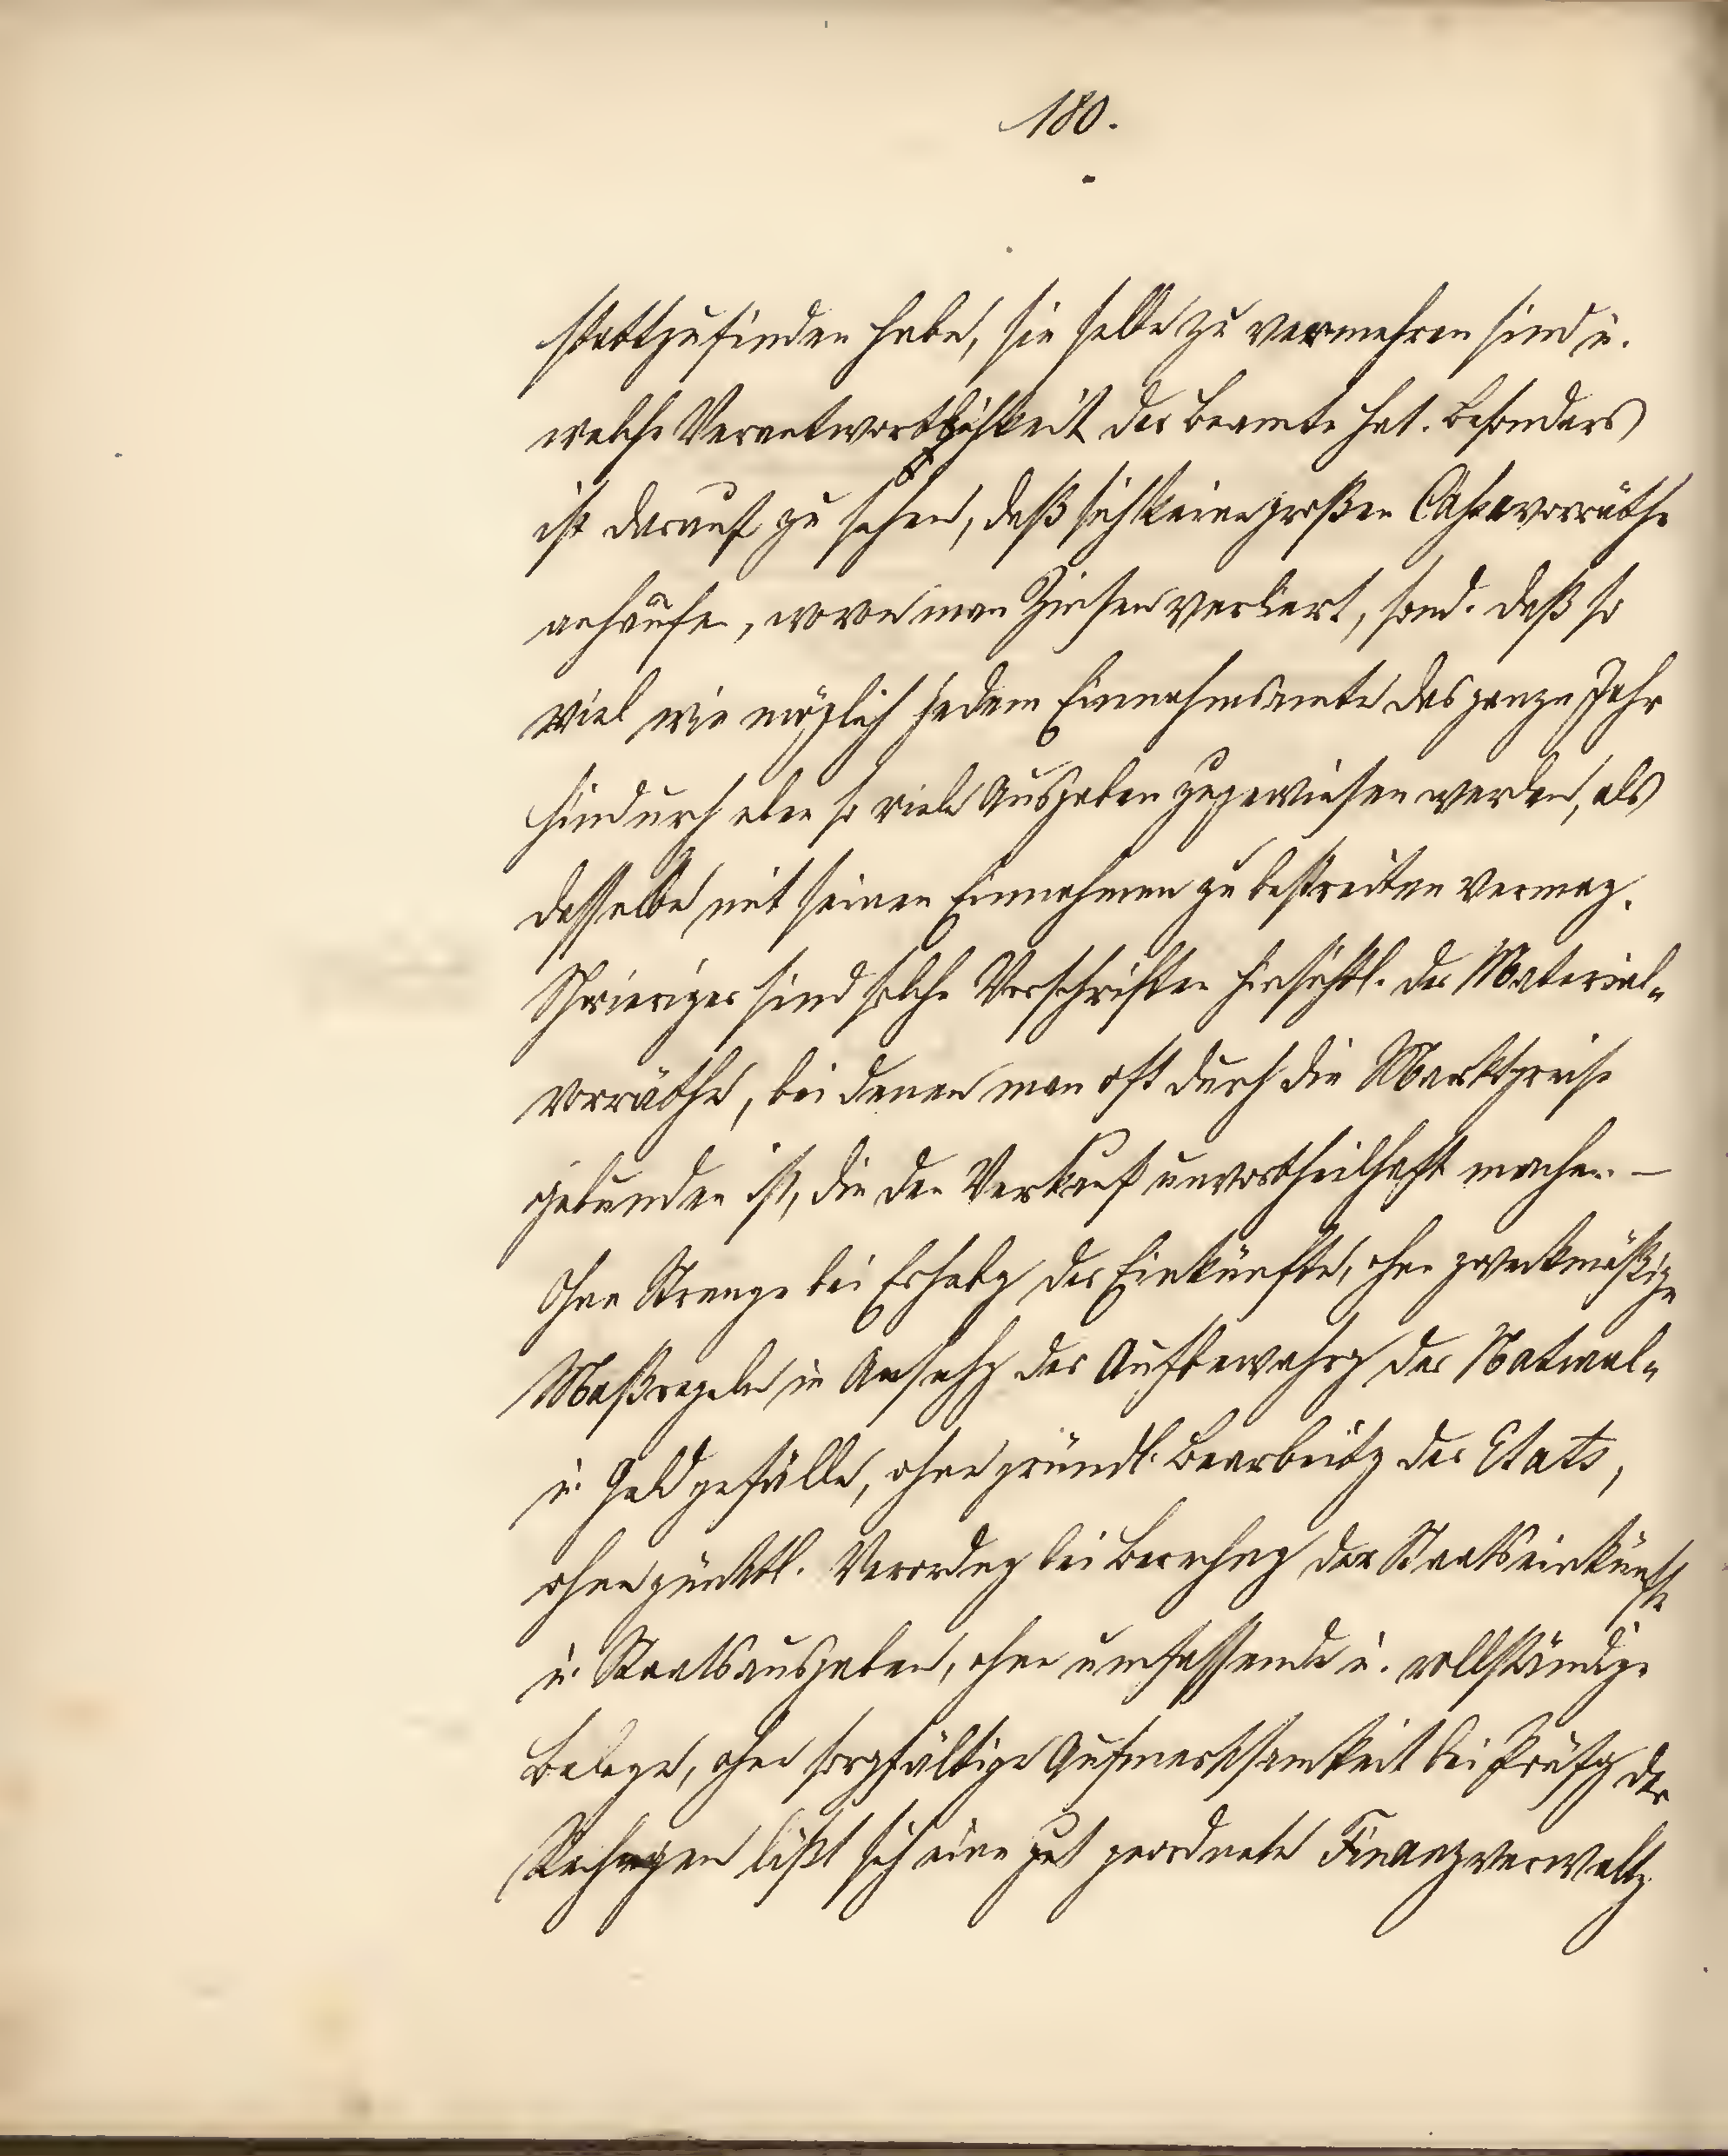 180.
stattzufinden habe, wie selbe zu vermehren sind u.
welche Verantwortlichkeit der Beamte hat. Besonders
ist darauf zu sehen, daß sich keine großen Cassavorräthe
anhäufen, wovon man Zinsen verliert, sond. daß so
viel wie möglich jedem Einnahmsamte das ganze Jahr
hindurch eben so viele Ausgaben zugewiesen werden, als
dasselbe mit seinen Einnahmen zu bestreiten vermag.
Schwieriger sind solche Vorschriften hinsichtl. der Material-
vorräthe, bei denen man oft durch die Marktpreise
gebunden ist, die den Verkauf unvortheilhaft machen. —
Ohne Strenge bei Erhebg der Einkünfte, ohne zweckmäßige
Maßregeln in Ansehg der Aufbewahrg der Natural-
u. Geldgefälle, ohne gründl. Bearbeitg der Etats,
ohne pünktl. Verordng bei Berechng der Staatseinkünfte
u. Staatsausgaben, ohne umfassende u. vollständige
Belege, ohne sorgfältige Aufmerksamkeit bei Prüfg der
Rechngen läßt sich eine gut geordnete Finanzverwaltg